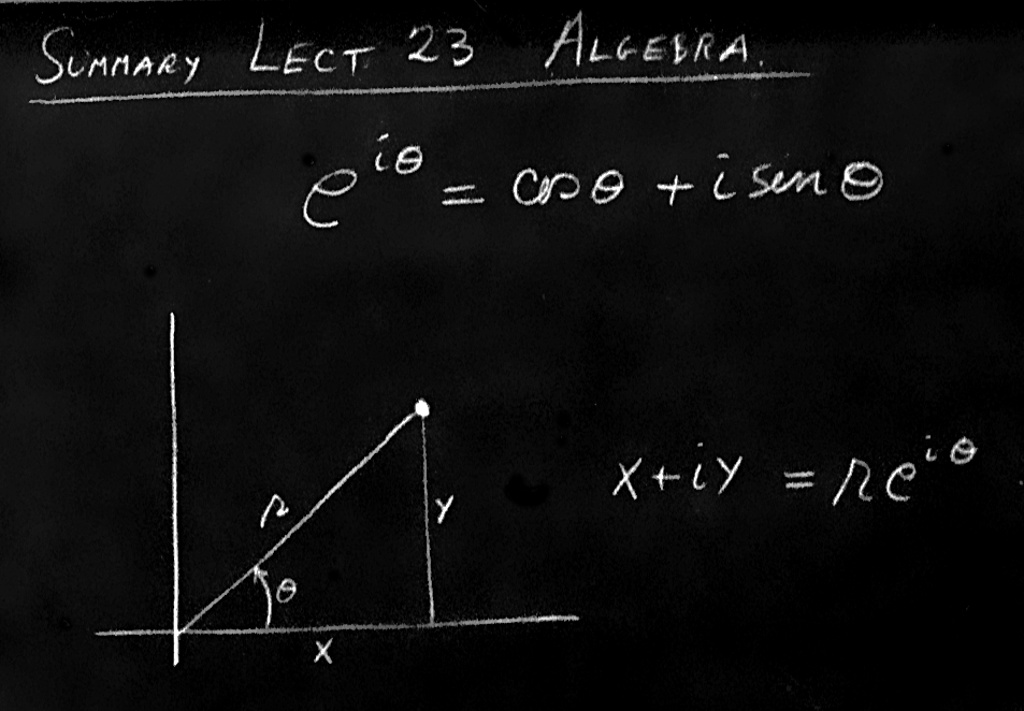 SUMMARY LECT 23 ALGEBRA.
e^{iθ} = cos θ + i sin θ
r
y
θ
x
x + iy = re^{iθ}.